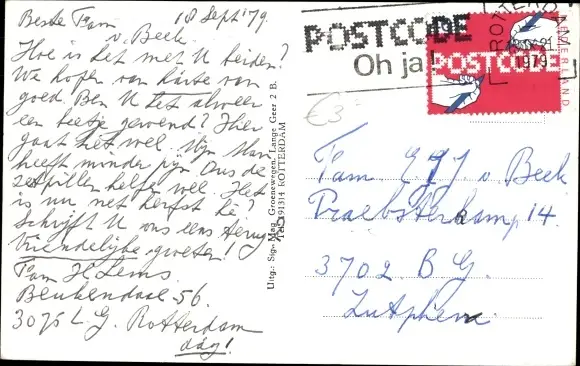 18 Sept '79.
Beste Fam
v. Beek.
Hoe is het met U beiden?
We hopen van harte van
goed. Ben U het alweer
een beetje gewend? Hier
gaat het wel. Mijn Man
heeft minder pijn Ons de
zetpillen helpen wel. Het
is nu net herfst hè?
Schrijft U ons eens terug
Vriendelijke groeten!
Fam H Lems.
Beukendaal 56.
3075 L.G. Rotterdam
dág!
Uitg.: Sig. Mag. Groenewegen, Lange Geer 2 B.
Tel. 191314 ROTTERDAM
POSTCODE
Oh ja!
ROTTERDAM
1979
POSTCODE
NEDERLAND
€3
Fam v. Beek
14.
3702 B G.
Zutphen